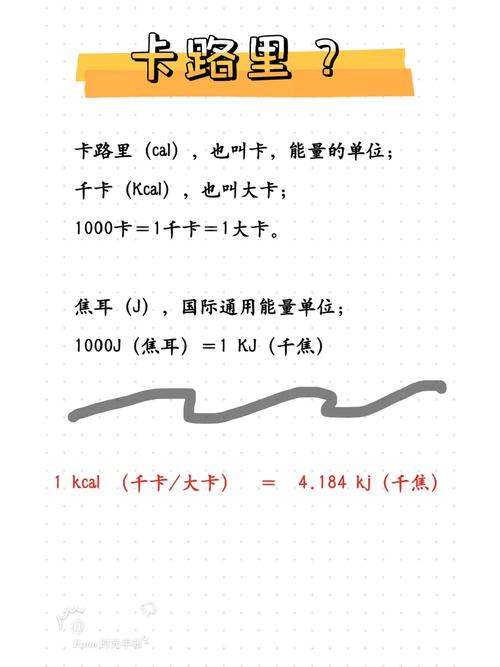 卡路里？
卡路里（cal），也叫卡，能量的单位；
千卡（Kcal），也叫大卡；
1000卡＝1千卡＝1大卡。
焦耳（J），国际通用能量单位；
1000J（焦耳）＝1 KJ（千焦）
1 kcal （千卡/大卡） ＝ 4.184 kj（千焦）